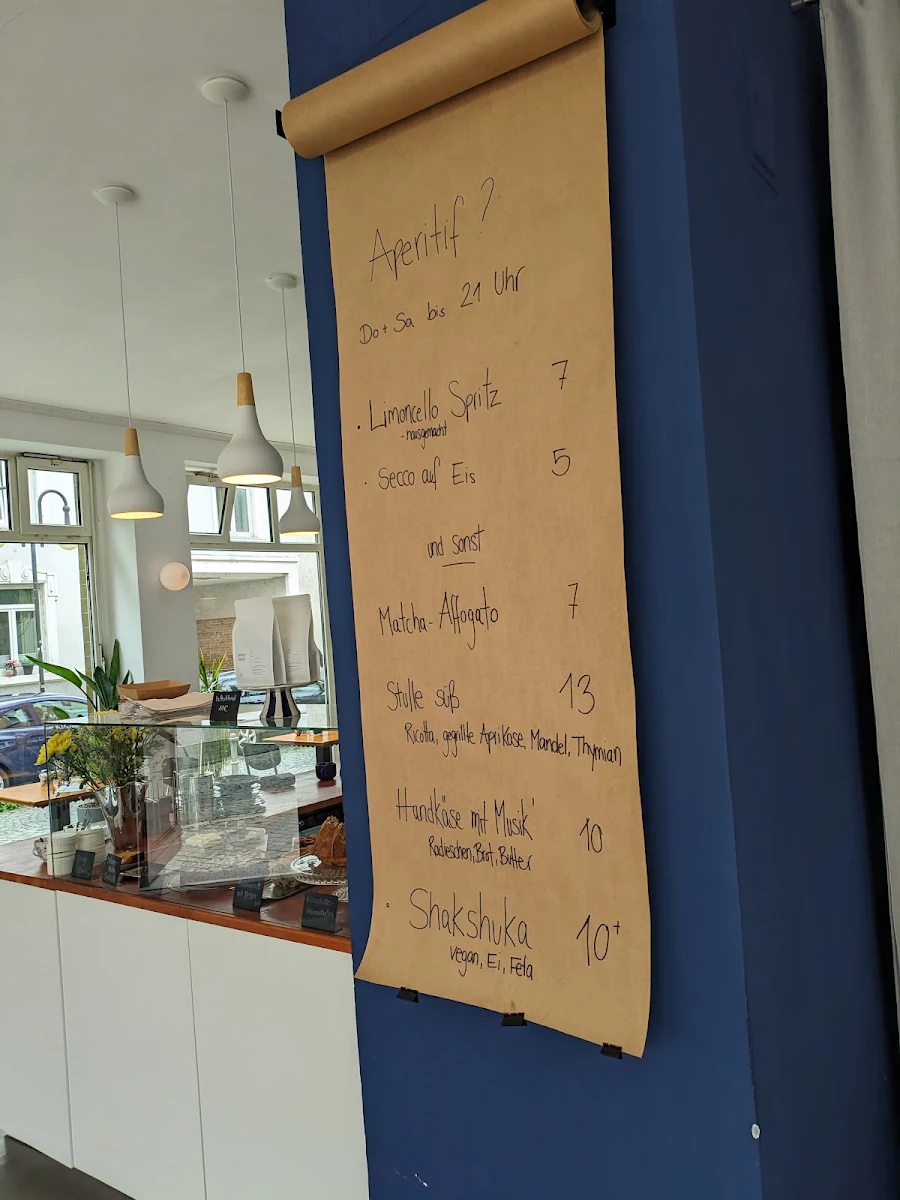 Aperitif ?
Do + Sa bis 21 Uhr
• Limoncello Spritz 7
- hausgemacht
• Secco auf Eis 5
und sonst
Matcha-Affogato 7
Stulle süß 13
Ricotta, gegrillte Aprikose, Mandel, Thymian
Handkäse mit Musik' 10
Radieschen, Brot, Butter
• Shakshuka 10+
vegan, Ei, Feta